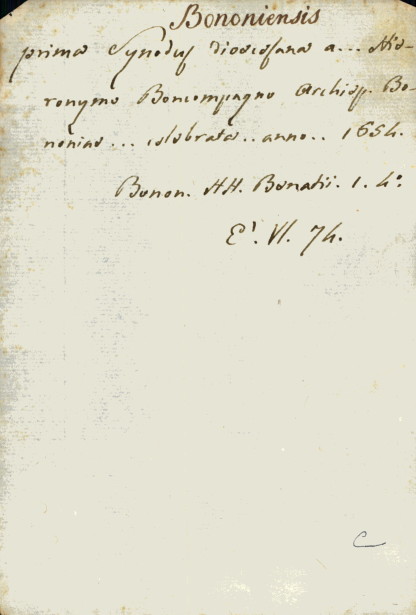 Bononiensis
prima Synodus dioecesana a... Hie-
ronymo Boncompagno Archiep. Bo-
noniae... celebrata.. anno.. 1654.
Bonon. HH. Benatii. 1. 4°
E'. VI. 74.
C